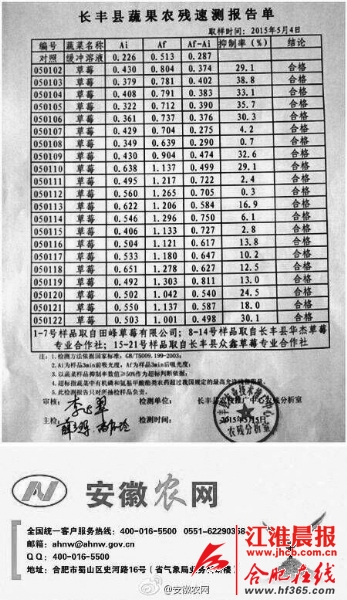 长丰县蔬果农残速测报告单
取样时间：2015年5月4日
编号 蔬菜名称 Ai Af Af-Ai 抑制率（%） 结论
对照 缓冲溶液 0.226 0.513 0.287
050102 草莓 0.430 0.804 0.374 29.1 合格
050103 草莓 0.379 0.781 0.402 38.8 合格
050104 草莓 0.408 0.791 0.383 33.1 合格
050105 草莓 0.322 0.712 0.390 35.7 合格
050106 草莓 0.361 0.737 0.376 30.3 合格
050107 草莓 0.429 0.704 0.275 4.2 合格
050108 草莓 0.349 0.639 0.290 0.7 合格
050109 草莓 0.430 0.904 0.474 32.6 合格
050110 草莓 0.638 1.137 0.499 29.1 合格
050111 草莓 0.495 1.217 0.722 2.4 合格
050112 草莓 0.560 1.265 0.705 0.3 合格
050113 草莓 0.622 1.206 0.584 16.9 合格
050114 草莓 0.546 1.296 0.750 6.1 合格
050115 草莓 0.406 1.133 0.727 2.8 合格
050116 草莓 0.504 1.121 0.617 13.8 合格
050117 草莓 0.533 1.180 0.647 10.2 合格
050118 草莓 0.651 1.278 0.627 12.5 合格
050119 草莓 0.492 1.303 0.811 13.0 合格
050120 草莓 0.502 1.042 0.540 24.5 合格
050121 草莓 0.550 1.137 0.587 18.0 合格
050122 草莓 0.503 1.001 0.498 30.1 合格
1-7号样品取自田峰草莓有限公司；8-14号样品取自长丰县华杰草莓
专业合作社；15-21号样品取自长丰县众鑫草莓专业合作社
2、Ai为样品3min前吸光度；Af为样品3min后吸光度
审核： 检测单位：
主检： 检测时间：2015年5月5日
安徽农网
全国统一客户服务热线：400-016-5500 0551-62290358
邮箱：ahnw@ahnw.gov.cn
QQ：400-016-5500
地址：合肥市蜀山区史河路16号（省气象局业务
@安徽农网
江淮晨报
合肥在线
www.hf365.com